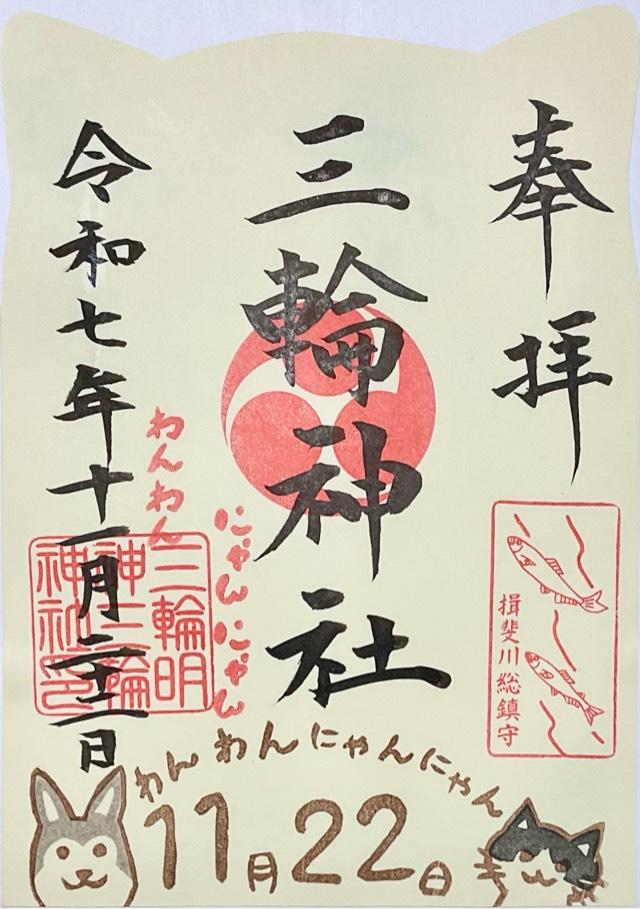 奉拝
揖斐川総鎮守
三輪神社
にゃんにゃん
わんわん
令和七年十一月二十二日
三輪明
神三輪
神社印
わんわんにゃんにゃん
11月22日